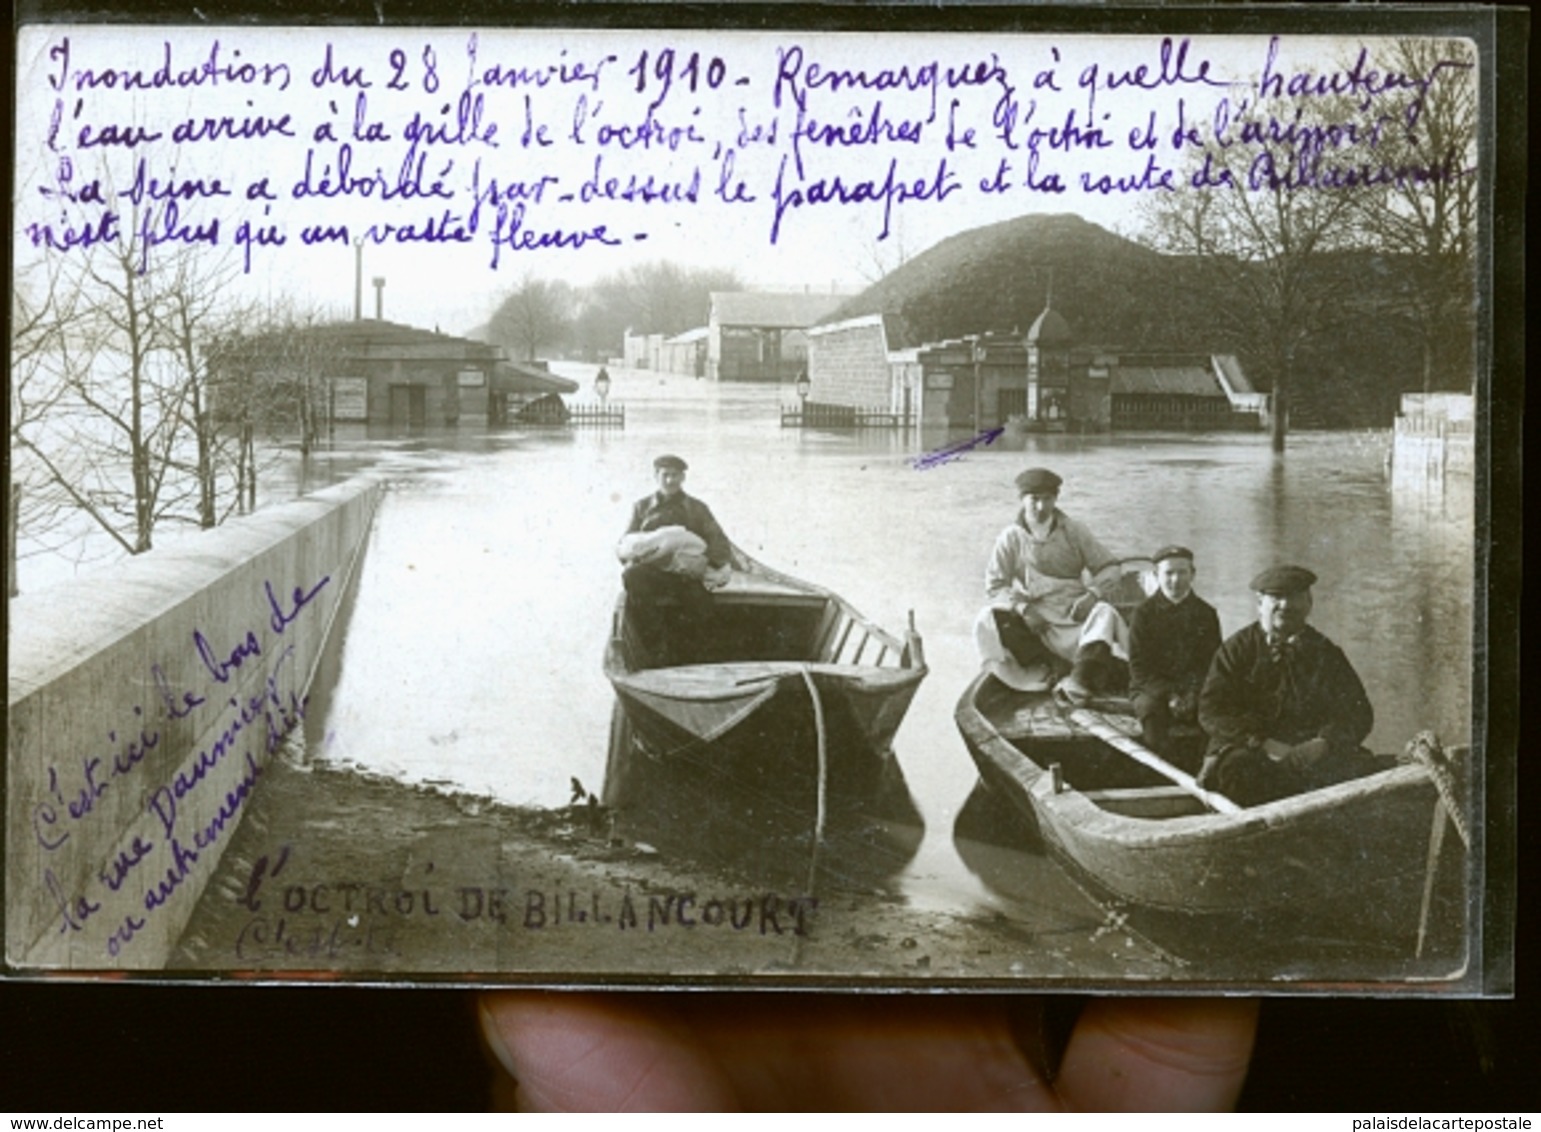 Inondation du 28 Janvier 1910 - Remarquez à quelle hauteur
l'eau arrive à la grille de l'octroi, des fenêtres de l'octroi et de l'urinoir !
La Seine a débordé par-dessus le parapet et la route de Billancourt
n'est plus qu'un vaste fleuve -
C'est ici le bas de
la rue Daumier
ou autrement dit
l'OCTROI DE BILLANCOURT
C'est
www.delcampe.net
palaisdelacartepostale